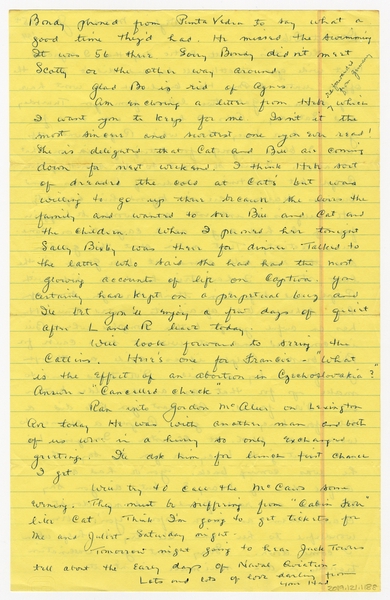 Bondy phoned from Punta Vedra to say what a
good time they'd had. He missed the swimming
It was 56 there. Sorry Bondy didn't meet
Scotty or the other way around.
Glad Bo is rid of Agnes.
Am enclosing a letter from Heb, which
I want you to keep for me. Isn't it the
most sincere and sweetest one you ever read!
She is delighted that Cat and Bill are coming
down for next weekend. I think Heb sort
of dreaded the cold at Cat's but was
willing to go up there because she loves the
family and wanted to see Bill and Cat and
the children. When I phoned her tonight
Sally Bixby was there for dinner. Talked to
the latter who said she had had the most
glowing accounts of life on Captiva. You
certainly have kept on a perpetual buzz and
I'll bet you'll enjoy a few days of quiet
after L and R leave today.
Will look forward to seeing the
Catlins. Here's one for Francis - "What
is the effect of an abortion in Czechoslovakia?"
Answer - "Cancelled Check"
Ran into Gordon McAleer on Lexington
Ave today. He was with another man and both
of us were in a hurry so only exchanged
greetings. I'll ask him for lunch first chance
I get.
Will try to call the McCaws some
evening. They must be suffering from "Cabin Fever"
like Cat. Think I'm going to get tickets for
me and Juliet - Saturday night.
Tomorrow night going to hear Jack Towers
tell about the Early days of Naval Aviation.
Lots and lots of love darling from
your
2019.121.1